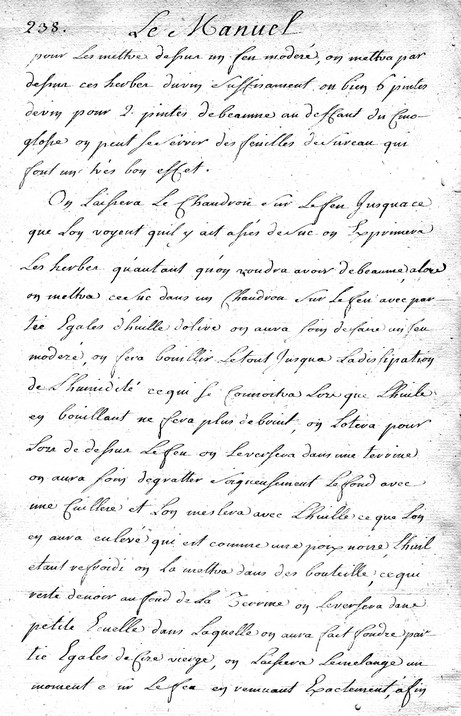 238. Le Manuel
pour Les mettre dessus un feu moderé, on mettra par
dessus ces herbes du vin suffisament, ou bien 6 pintes
de vin pour 2 pintes de beaume au deffaut du Cino-
glosse on peut se servir des feuilles de sureau qui
font un tres bon effet.
On Laissera Le Chaudron sur Le feu Jusqua ce
que Lon voyent quil y ait assés de suc on Exprimera
Les herbes qu'autant qu'on voudra avoir de beaume, alors
on mettra ce suc dans un Chaudron sur Le feu avec par-
tie Egales d'huille dolive on aura soin de faire un feu
moderé, on fera bouillir Le tout Jusqua La dissipation
de L'humidité ce qui se Connoitra Lors que L'huile
en bouillant ne fera plus de bruit, on Lotera pour
Lors de dessus Le feu on Le versera dans une terrine
on aura soin de gratter soigneusement Le fond avec
une Cuillere et Lon meslera avec L'huille ce que Lon
en aura enlevé qui est comme une poix noire L'huil
etant refroidi on La mettra dans des bouteille, ce qui
reste de noir au fond de La Terrine on Le versera dans
petite Ecuelle dans Laquelle on aura fait fondre par-
tie Egales de Cire vierge, on Laissera Le melange un
moment sur Le feu en remuant Exactement, afin